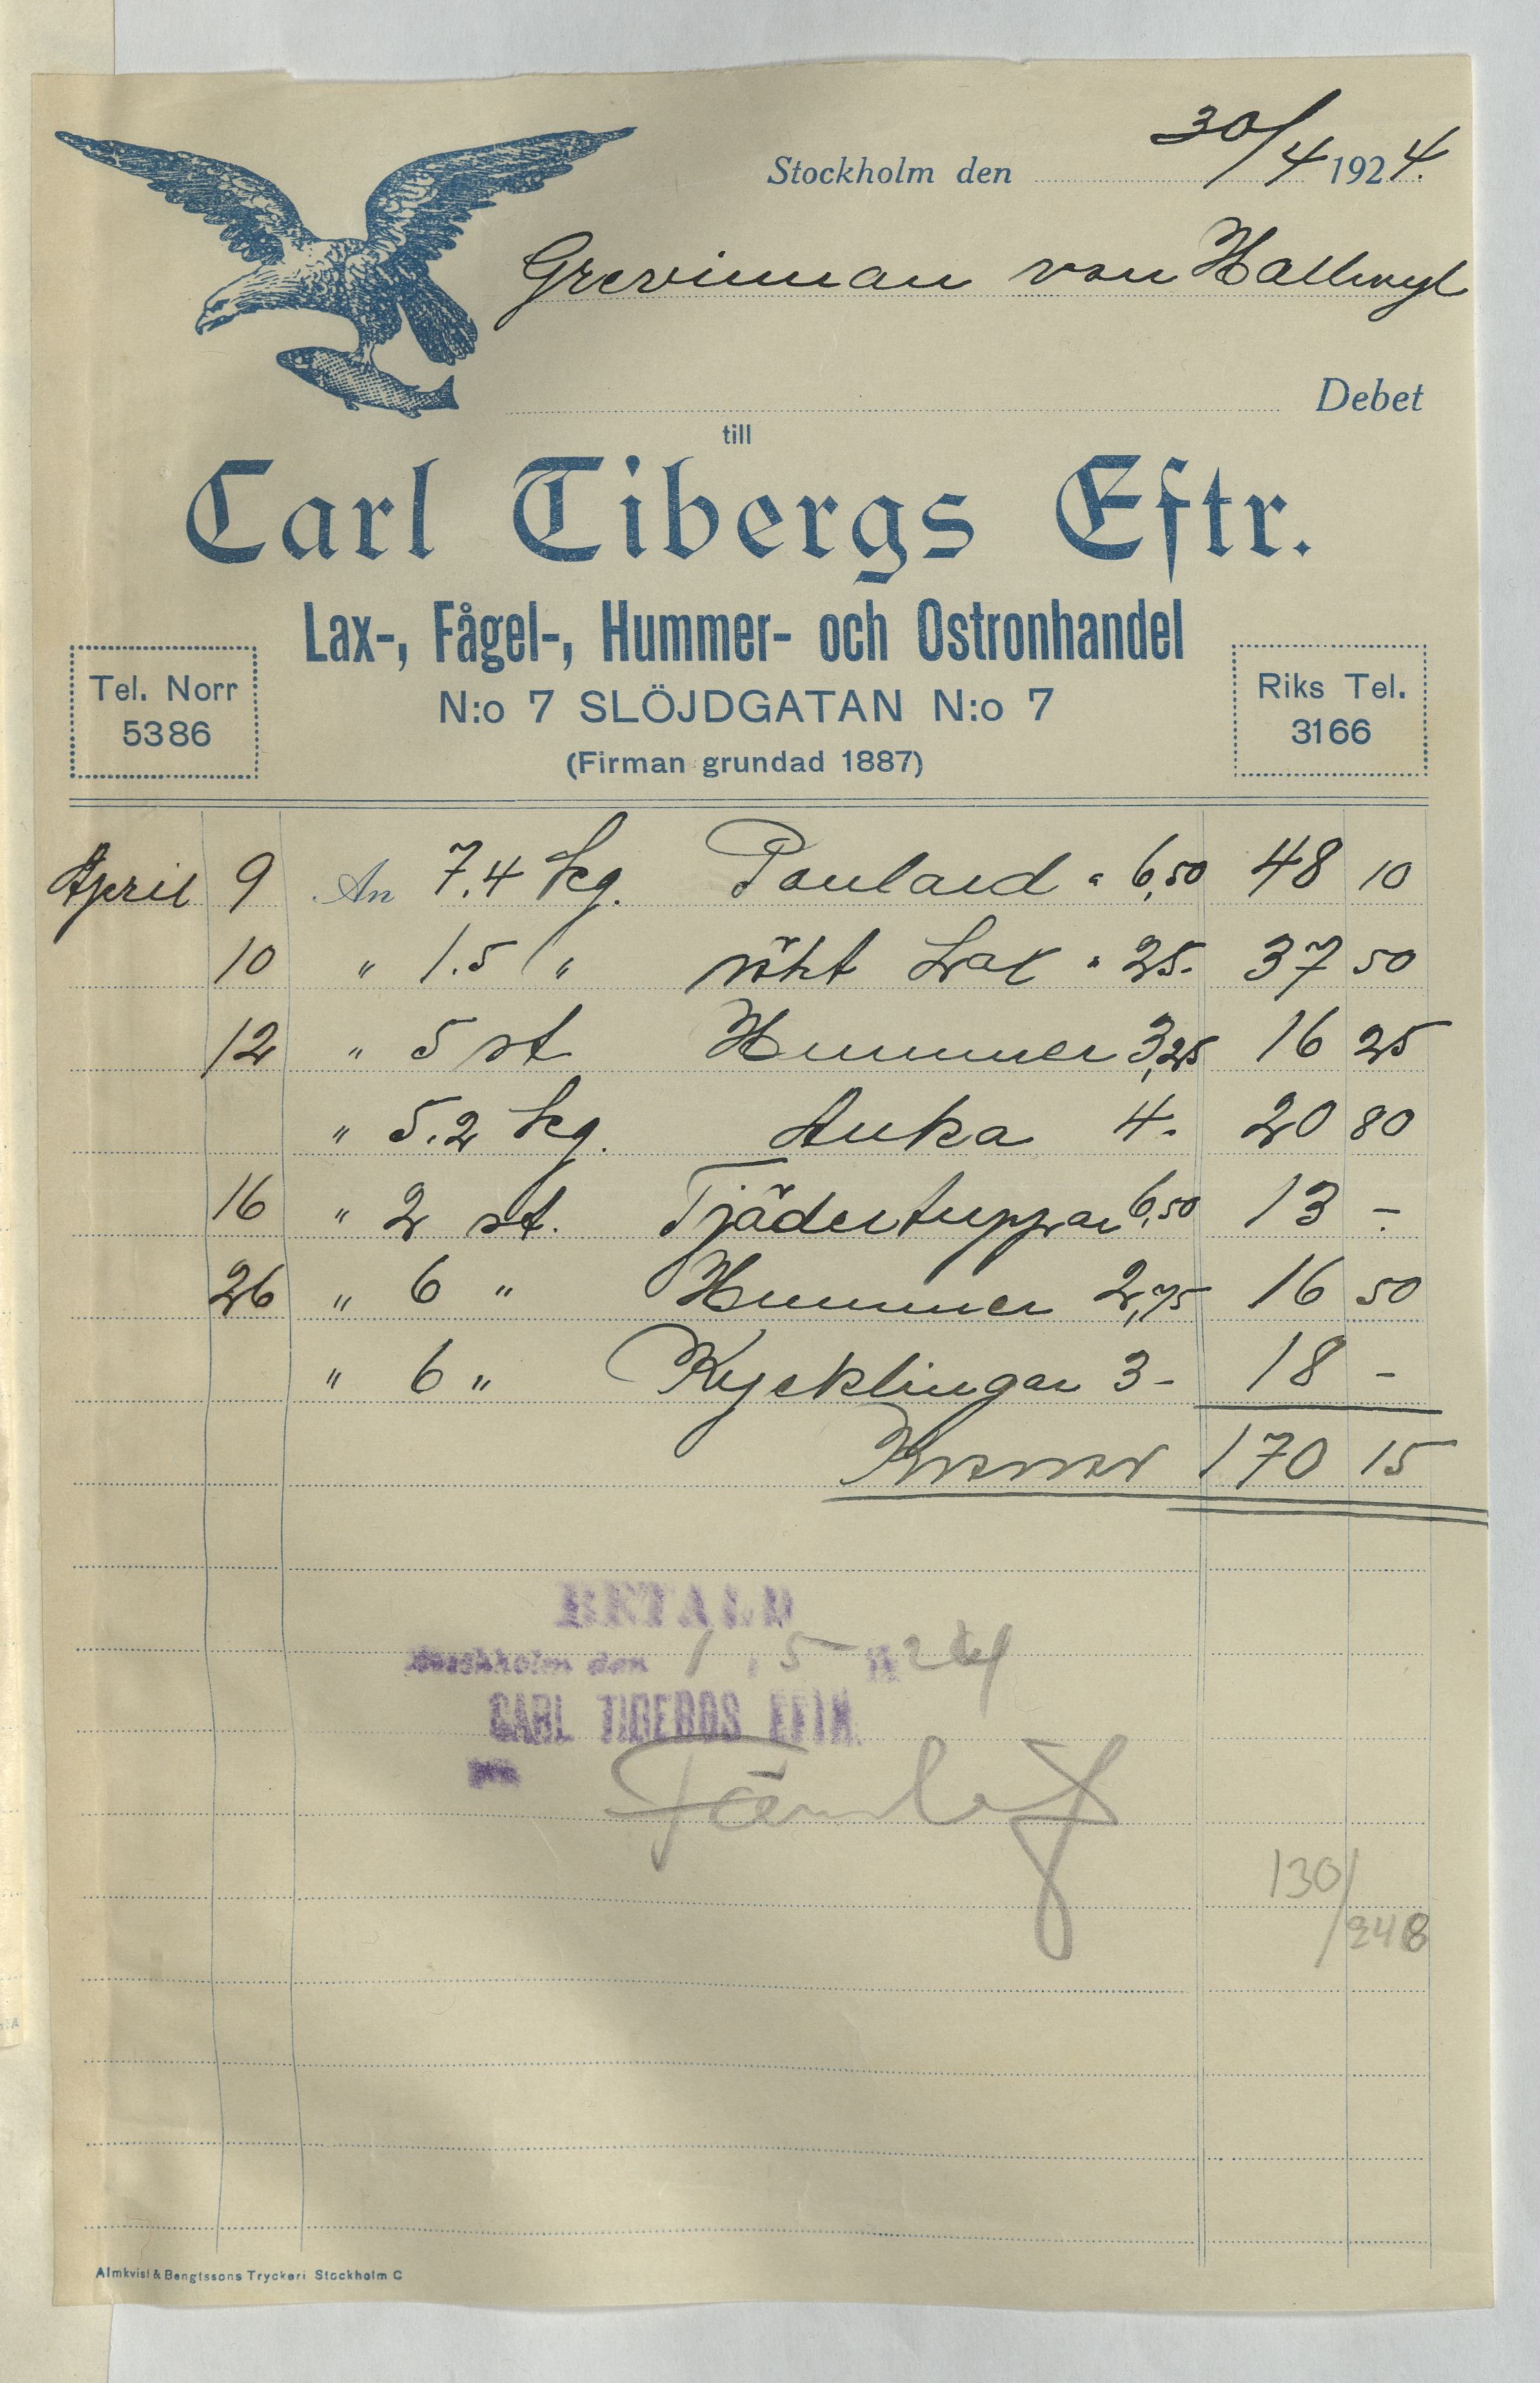 Stockholm den 30/4 1924.
Grevinnan von Hallwyl
Debet
till
Carl Tibergs Eftr.
Lax-, Fågel-, Hummer- och Ostronhandel
Tel. Norr
5386
N:o 7 SLÖJDGATAN N:o 7
(Firman grundad 1887)
Riks Tel.
3166
April 9 An 7.4 kg. Poulard " 6,50 48 10
10 " 1.5 " rökt Lax " 25.- 37 50
12 " 5 st Hummer 3,25 16 25
" 5.2 kg. Anka 4.- 20 80
16 " 2 st. Tjädertuppar 6,50 13 -
26 " 6 " Hummer 2,75 16 50
" 6 " Kycklingar 3- 18 -
Kronor 170 15
BETALD
Stockholm den 1 / 5 1924
CARL TIBERGS EFTR.
130/248
Almkvist & Bengtssons Tryckeri Stockholm C